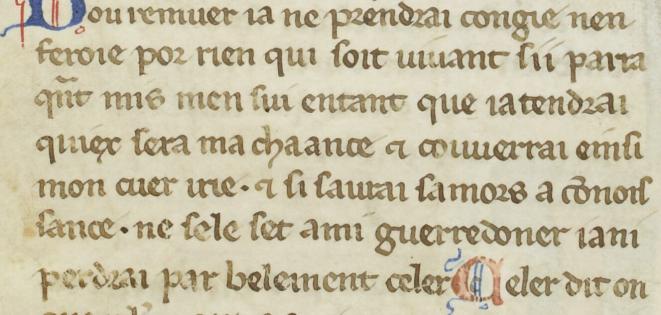 Dou remuer ia ne prendrai congie nen
feroie por rien qui soit uiuant sii parra
qñt mis men sui entant que iatendrai
quiex sera ma chaance ⁊ couuerrai einsi
mon cuer irie · ⁊ si saurai samors a cõnois
sance · ne sele set ami guerredoner iani
perdrai par belement celer Celer dit on